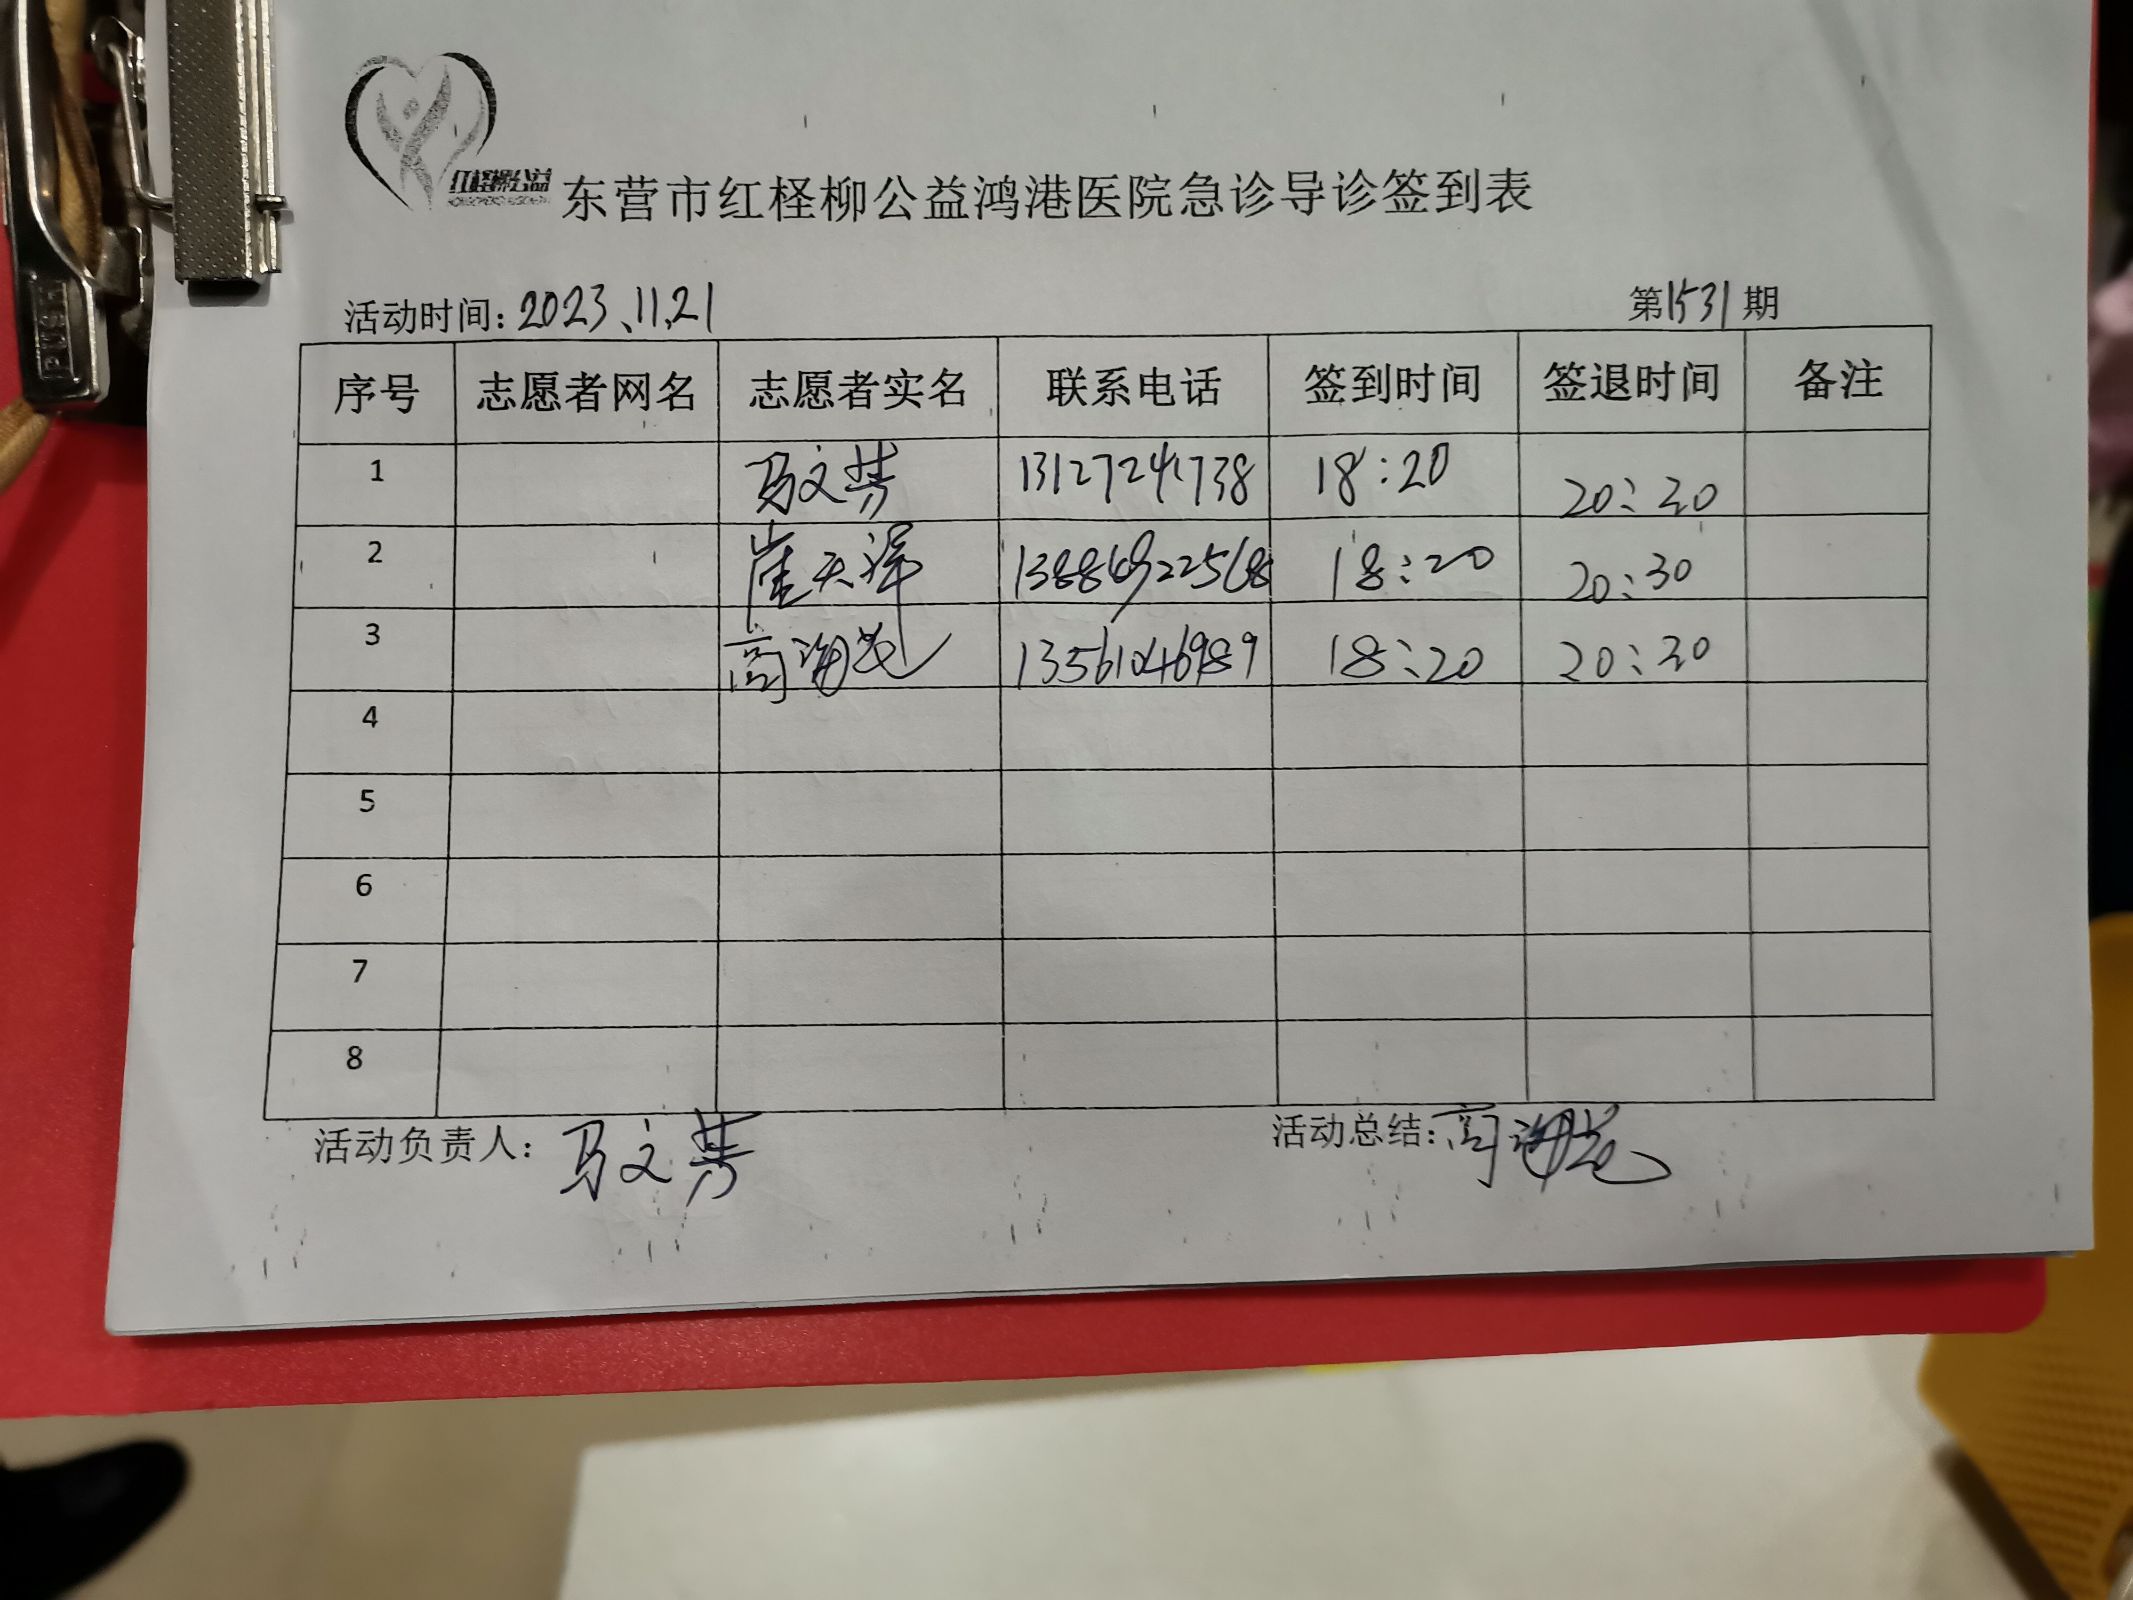 红柽柳公益
东营市红柽柳公益鸿港医院急诊导诊签到表
活动时间：2023、11.21 第1531期
序号 志愿者网名 志愿者实名 联系电话 签到时间 签退时间 备注
1 马文芳 13127241738 18:20 20:30
2 崔天泽 18:20 20:30
3 高海花 13561046989 18:20 20:30
4
5
6
7
8
活动负责人：马文芳 活动总结：高海花
PUSH